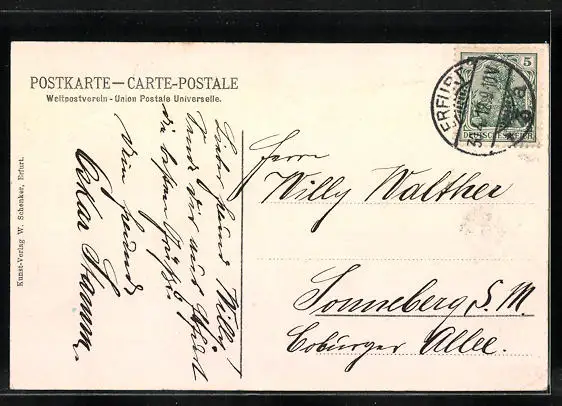 POSTKARTE — CARTE-POSTALE
Weltpostverein - Union Postale Universelle.
Lieber Freund Willi!
Sende dir aus Erfurt
die besten Grüße
Dein Freund
Oskar Stamm.
Herrn
Willy Walther
Sonneberg S. M.
Coburger Allee.
Kunst-Verlag W. Schenker, Erfurt.
ERFURT
5
DEUTSCHES REICH